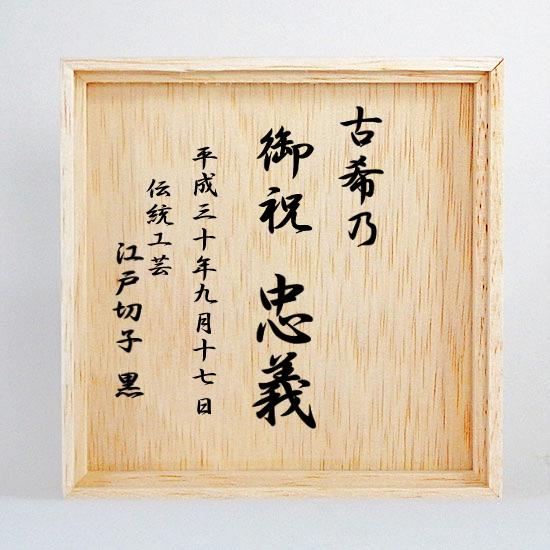 古希乃
御祝 忠義
平成三十年九月十七日
伝統工芸
江戸切子 黒